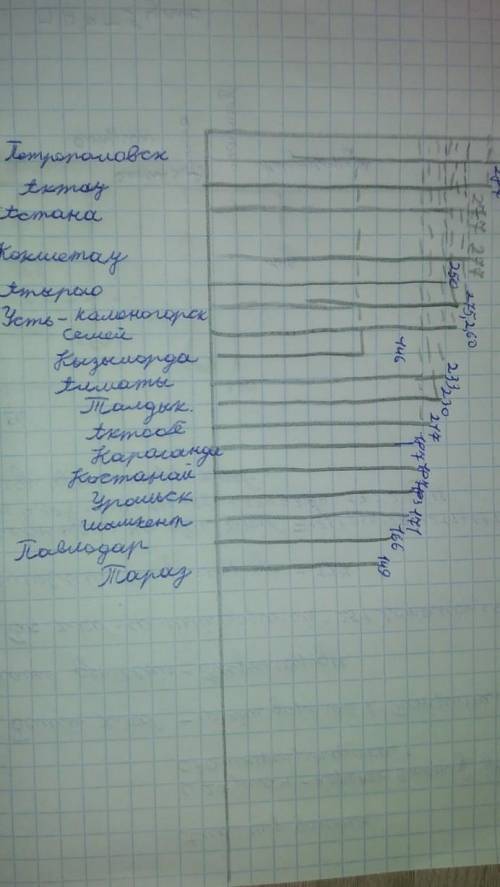 Петропаловск
Актау
Астана
Кокшетау
Атырао
Усть-Каменогорск
Семей
Кызылорда
Алматы
Талдык.
Актобе
Караганда
Костанай
Уральск
Шымкент
Павлодар
Тараз
277 277
250
275,260
146
233,230
217
171
166
149